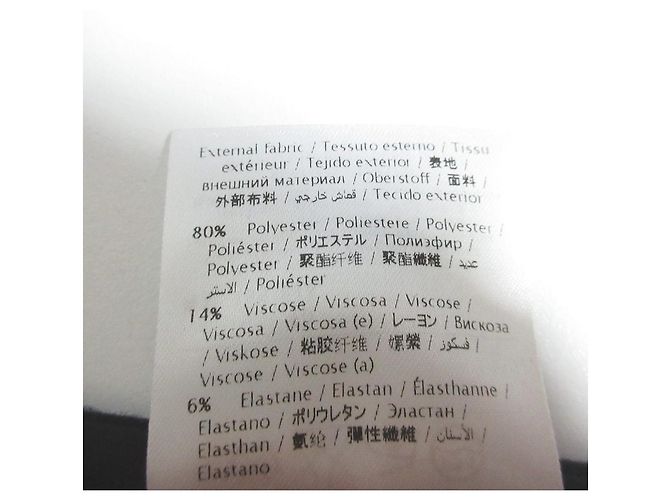 External fabric / Tessuto esterno / Tissu
extérieur / Tejido exterior / 表地 /
внешний материал / Oberstoff / 面料 /
外部布料 / قماش خارجي / Tecido exterior
80% Polyester / Poliestere / Polyester /
Poliéster / ポリエステル / Полиэфир /
Polyester / 聚酯纤维 / 聚酯纖維 / عديد
الاستر / Poliéster
14% Viscose / Viscosa / Viscose /
Viscosa / Viscosa (e) / レーヨン / Вискоза
/ Viskose / 粘胶纤维 / 嫘縈 / فسكوز /
Viscose / Viscose (a)
6% Elastane / Elastan / Élasthanne /
Elastano / ポリウレタン / Эластан /
Elasthan / 氨纶 / 彈性纖維 / الأستان /
Elastano